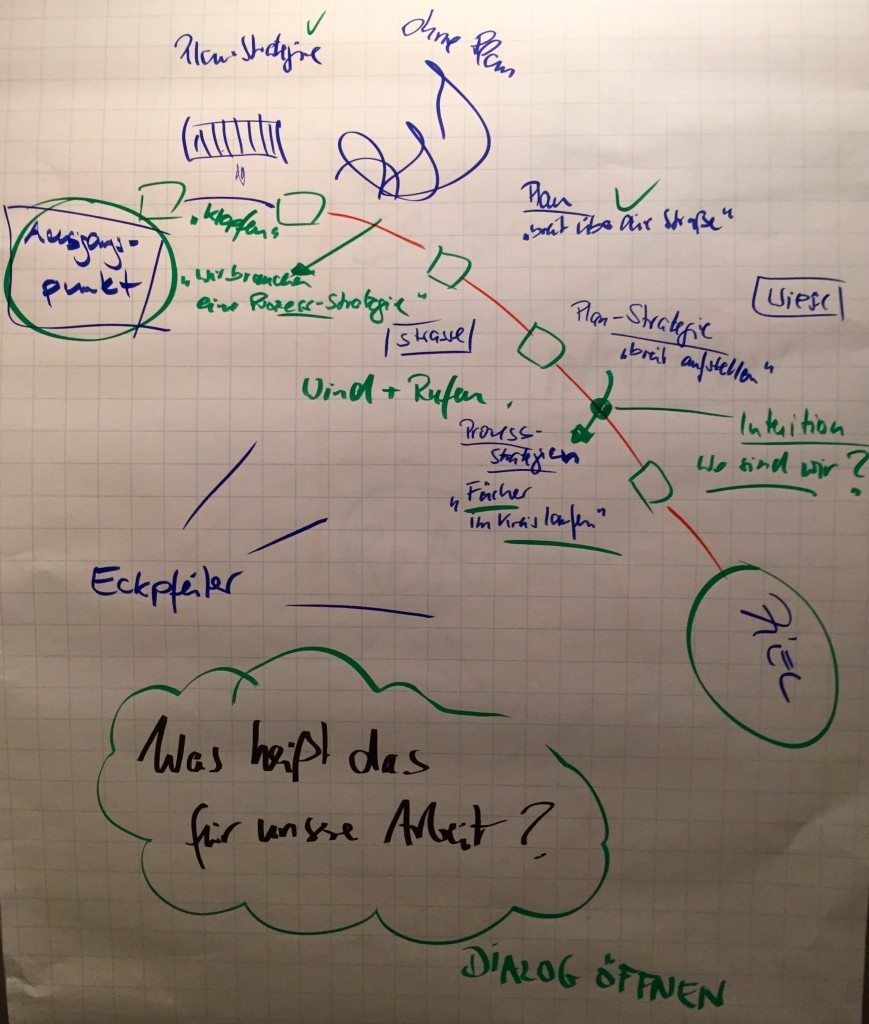 Plan-Strategie
ohne Plan
Ausgangs-
punkt
"Klopfen"
"wir brauchen
eine Prozess-Strategie"
Plan
"breit über die Straße"
Strasse
Wiese
Plan-Strategie
"breit aufstellen"
Wind + Rufen
Prozess-
Strategien
"Fächer
im Kreis laufen"
Intuition
Wo sind wir?
Eckpfeiler
ZIEL
Was heißt das
für unsere Arbeit?
DIALOG ÖFFNEN